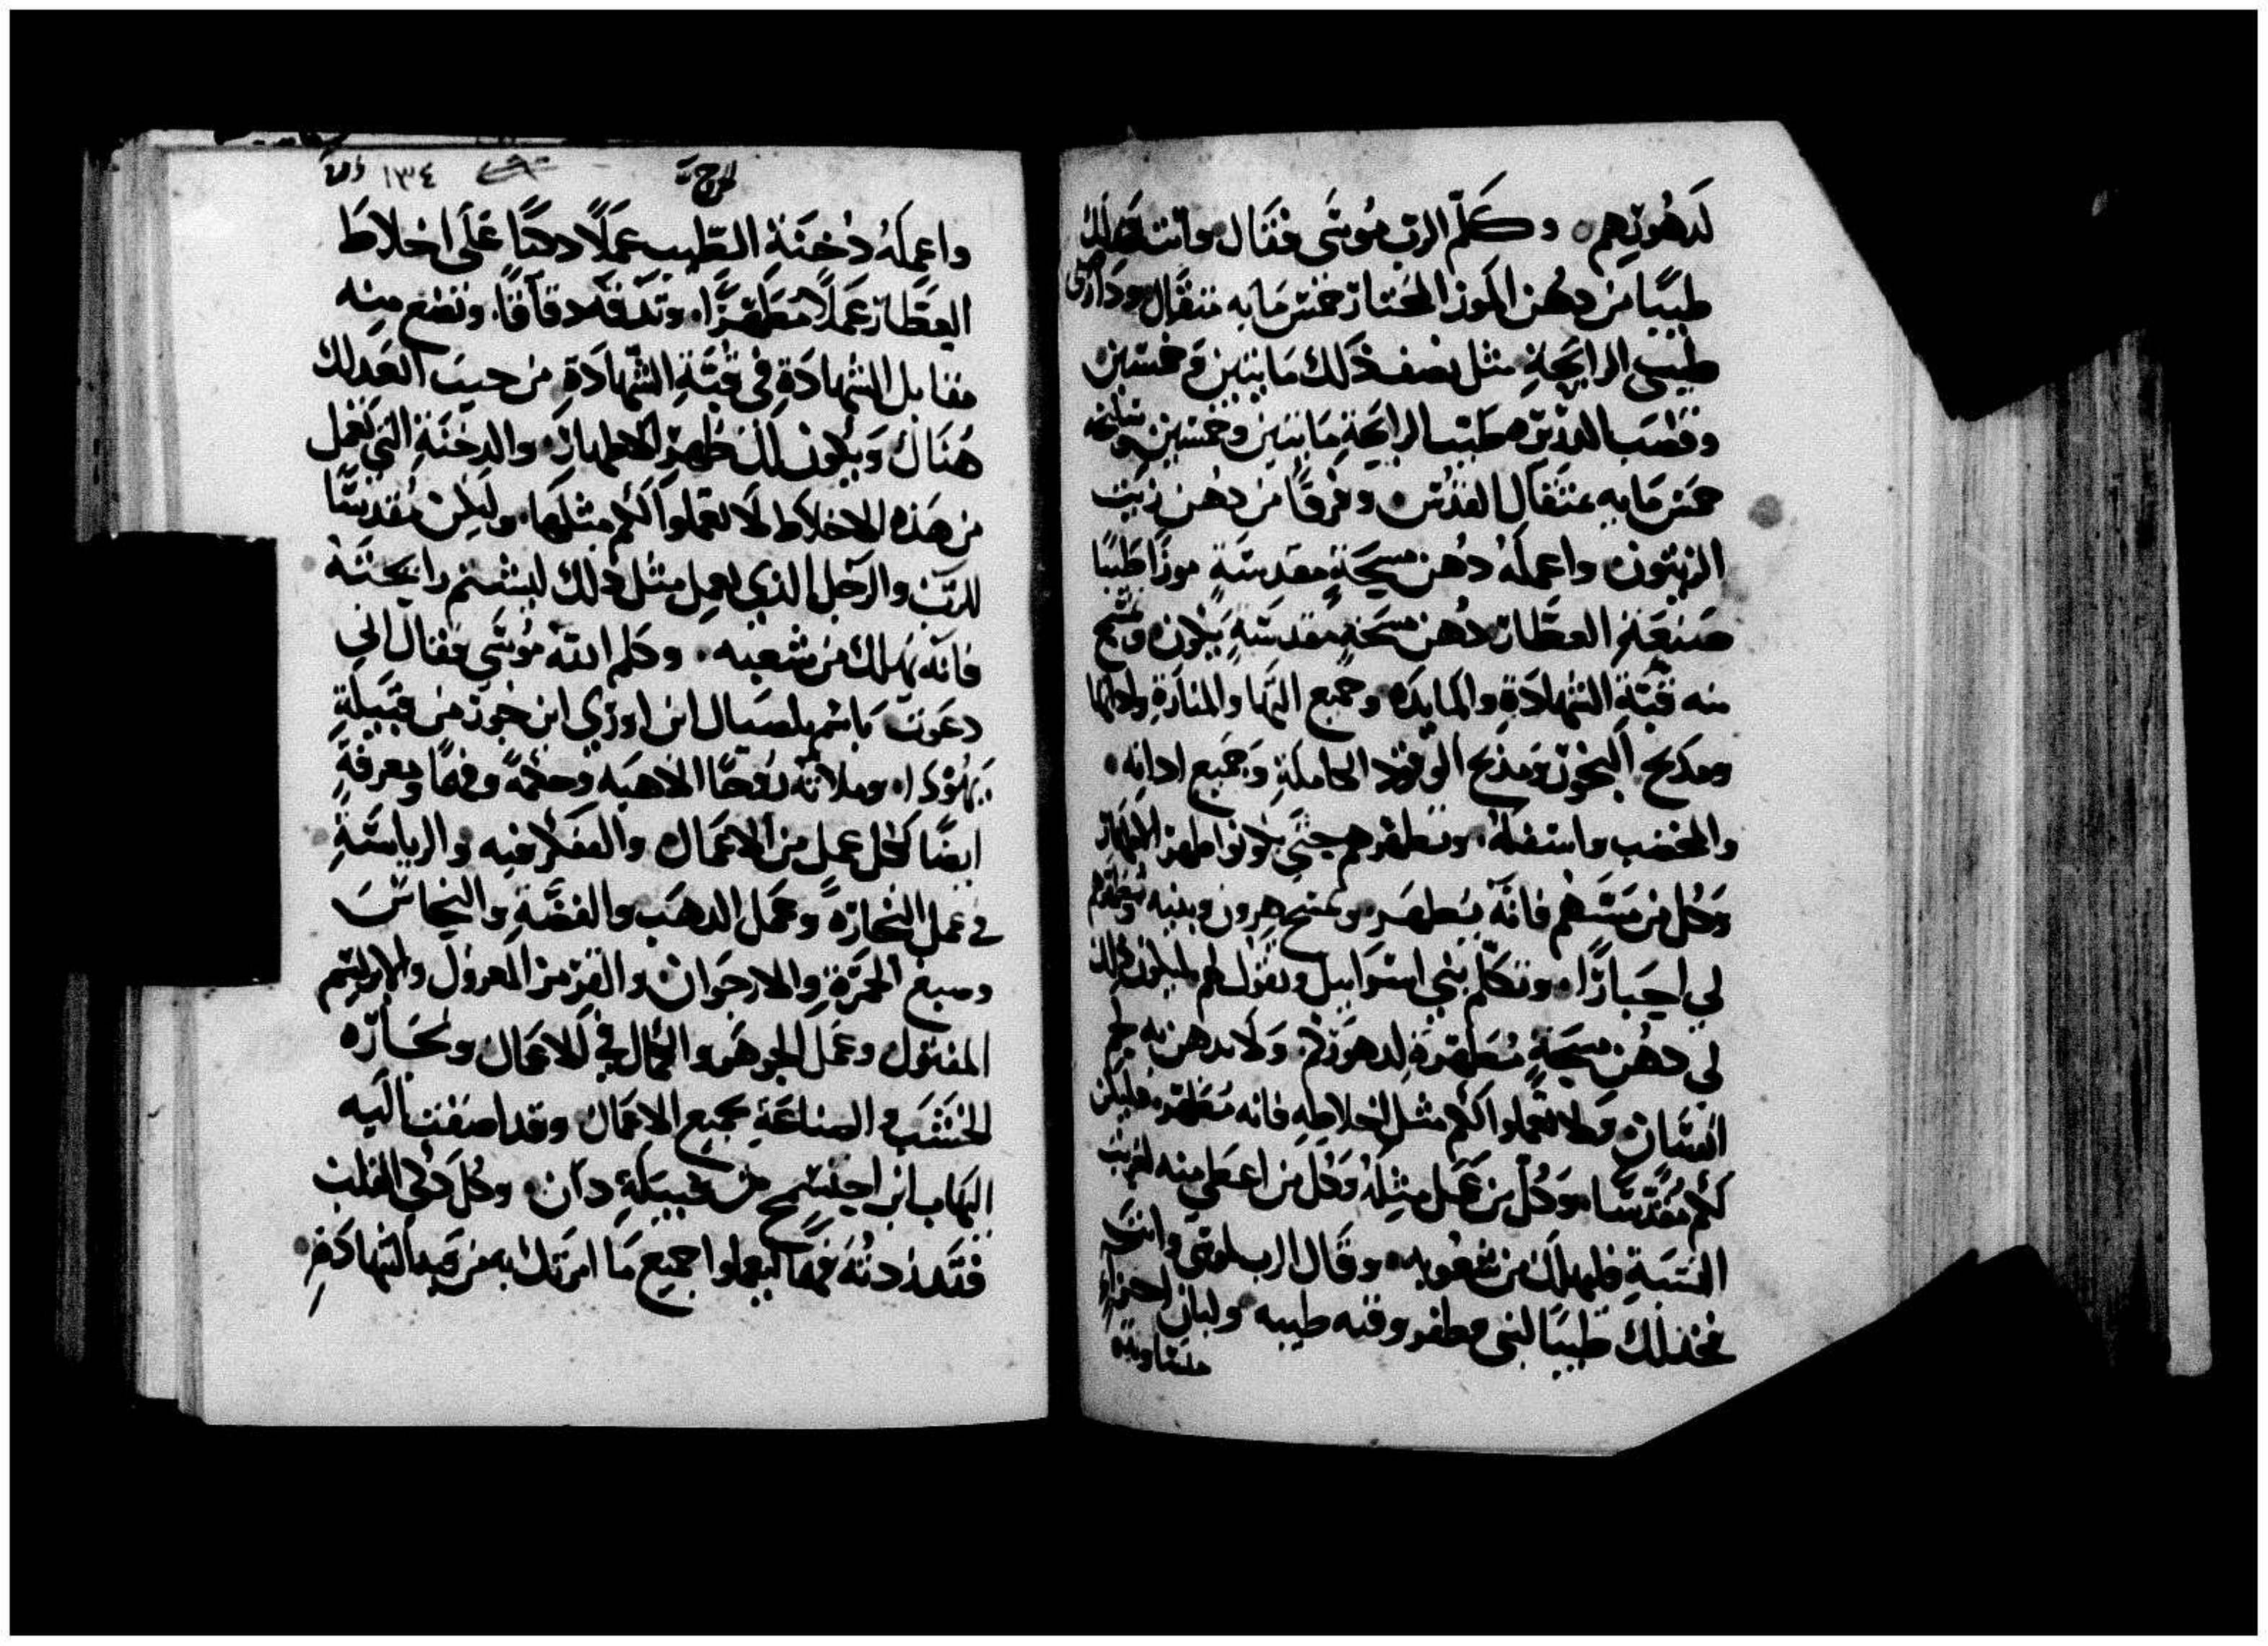 لدهورهم وكلم الرب موسى فقال وانت خذ لك
طيبًا من دهن الموز المختار خمس مايه مثقال ودارصيني
طيب الرايحة مثل نصف ذلك مايتين وخمسين
وقصب الذريره طيب الرايحة مايتين وخمسين وسليخه
خمس مايه مثقال القدس وفرقًا من دهن زيت
الزيتون واعمله دُهن مسيحةٍ مقدسةٍ موزًا طيبًا
صنعةِ العطار دُهن مسحةٍ مقدسةٍ يكون وتمسح
منه قبّةِ الشهادةِ والمايدَه وجميع انيتها والمنارةِ واداتها
ومذبح البخور ومذبح الوقود الكاملةِ وَجَميع اداته
والمخضب واسفله وتطهرهم حتى يكونوا اطهر الاطهار
وَكُل من مسّهم فانّه يتطهر وتمسح هرون وبنيه وتطهرهم
لي احبارًا وتكلّم بني اسراييل وتقول لهم ليكون ذلك
لي دهن مسيحةٍ مُطهرَةٍ لدهوركم وَلا يدهن به لحم
انسان ولا تعملوا لكم مثل اخلاطهِ فانه مُطهر فليكن
لكم مقدسًا وَكُل من عمل مثلهُ وَكل من اعطى منه لغريب
النسبةِ فليهلك من شعوبه وقال الرب لموسى وانت
فخذ لك طيبًا لبنى وظفر وقنه طيبه ولبان اجزاءٍ
متساويه
الخروج
١٣٤
واعمله دُخنَةِ الطيب عملًا دهنًا عَلَى اخلاط
العطار عَملًا مُطهرًا وتدقه دقاقًا وتضع منِه
مقابل الشهادَةِ في قبّةِ الشهادَةِ من حيث اتعد لك
هُنَاك وَيكون لك طهر الاطهار والدِخنَةِ التي تعمل
من هذه الاخلاط لا تعملوا لكم مثلها وليكن مقدسًا
للربّ والرجل الذي يعمل مثل ذلك ليشتم رايحته
فانّه يهلك من شعبه وكلم الله موسَى فقال اني
دعَوت باسم بلصيال ابن اوري ابن خور من قبيلةِ
يهُوذا وملاتّه روحًا الاهيه وحكمةً وفهمًا ومعرفةٍ
ايضًا لكل عمل من الاعمال والتفكر فيه والرياسَةِ
في عمل النجارةِ وعمل الذهب والفضّةِ والنحاسَ
وصبغ الحمرَةِ والارجوان والقرمز المغزول والابرليسم
المفتول وعمل الجوهر والكمال في الاعمال ونجَارَه
الخشب الصناعَةِ بجميع الاعمال وقد اضفت اليه
اليهاب ابن اجيسمح من قبيلةِ دان وكل ذكي القلب
فقد زدتُه فهمًا ليعملوا جميع ما امرتك به من قبة الشهادةِ